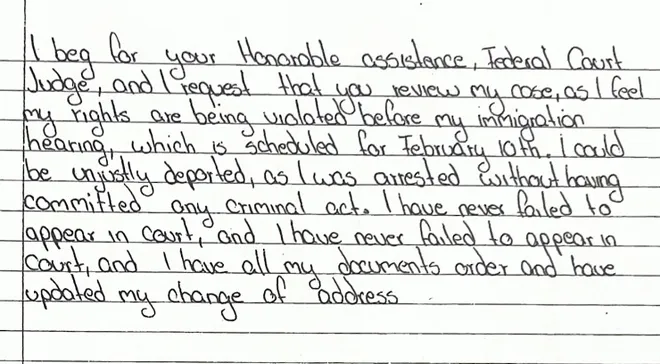 I beg for your Honorable assistance, Federal Court
Judge, and I request that you review my case, as I feel
my rights are being violated before my immigration
hearing, which is scheduled for February 10th. I could
be unjustly deported, as I was arrested without having
committed any criminal act. I have never failed to
appear in court, and I have never failed to appear in
court, and I have all my documents order and have
updated my change of address